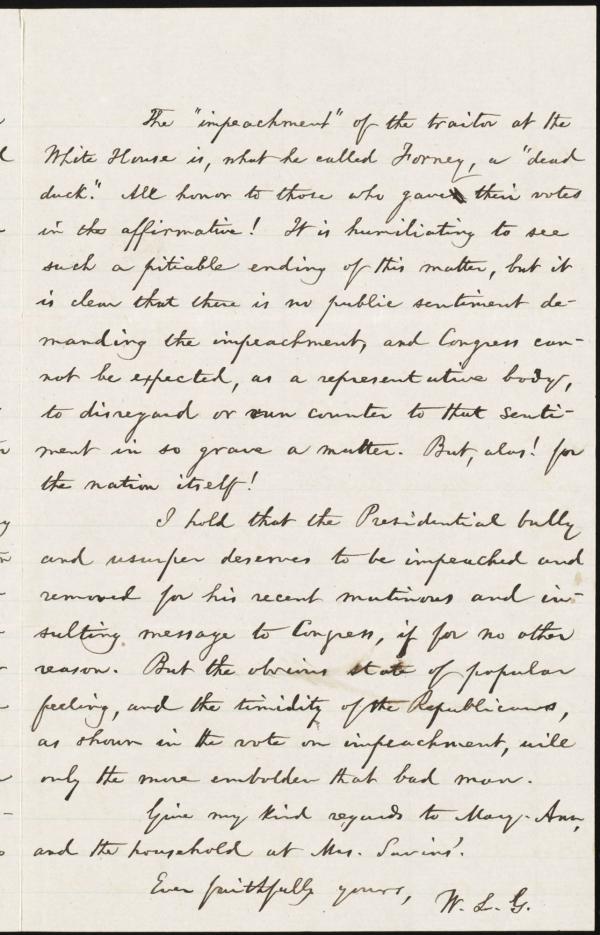 The "impeachment" of the traitor at the
White House is, what he called Forney, a "dead
duck." All honor to those who gave their votes
in the affirmative! It is humiliating to see
such a pitiable ending of this matter, but it
is clear that there is no public sentiment de-
manding the impeachment, and Congress can-
not be expected, as a representative body,
to disregard or run counter to that senti-
ment in so grave a matter. But, alas! for
the nation itself!
I hold that the Presidential bully
and usurper deserves to be impeached and
removed for his recent mutinous and in-
sulting message to Congress, if for no other
reason. But the obvious state of popular
feeling, and the timidity of the Republicans,
as shown in the vote on impeachment, will
only the more embolden that bad man.
Give my kind regards to Mary-Ann,
and the household at Mrs.
Ever faithfully yours,
W. L. G.